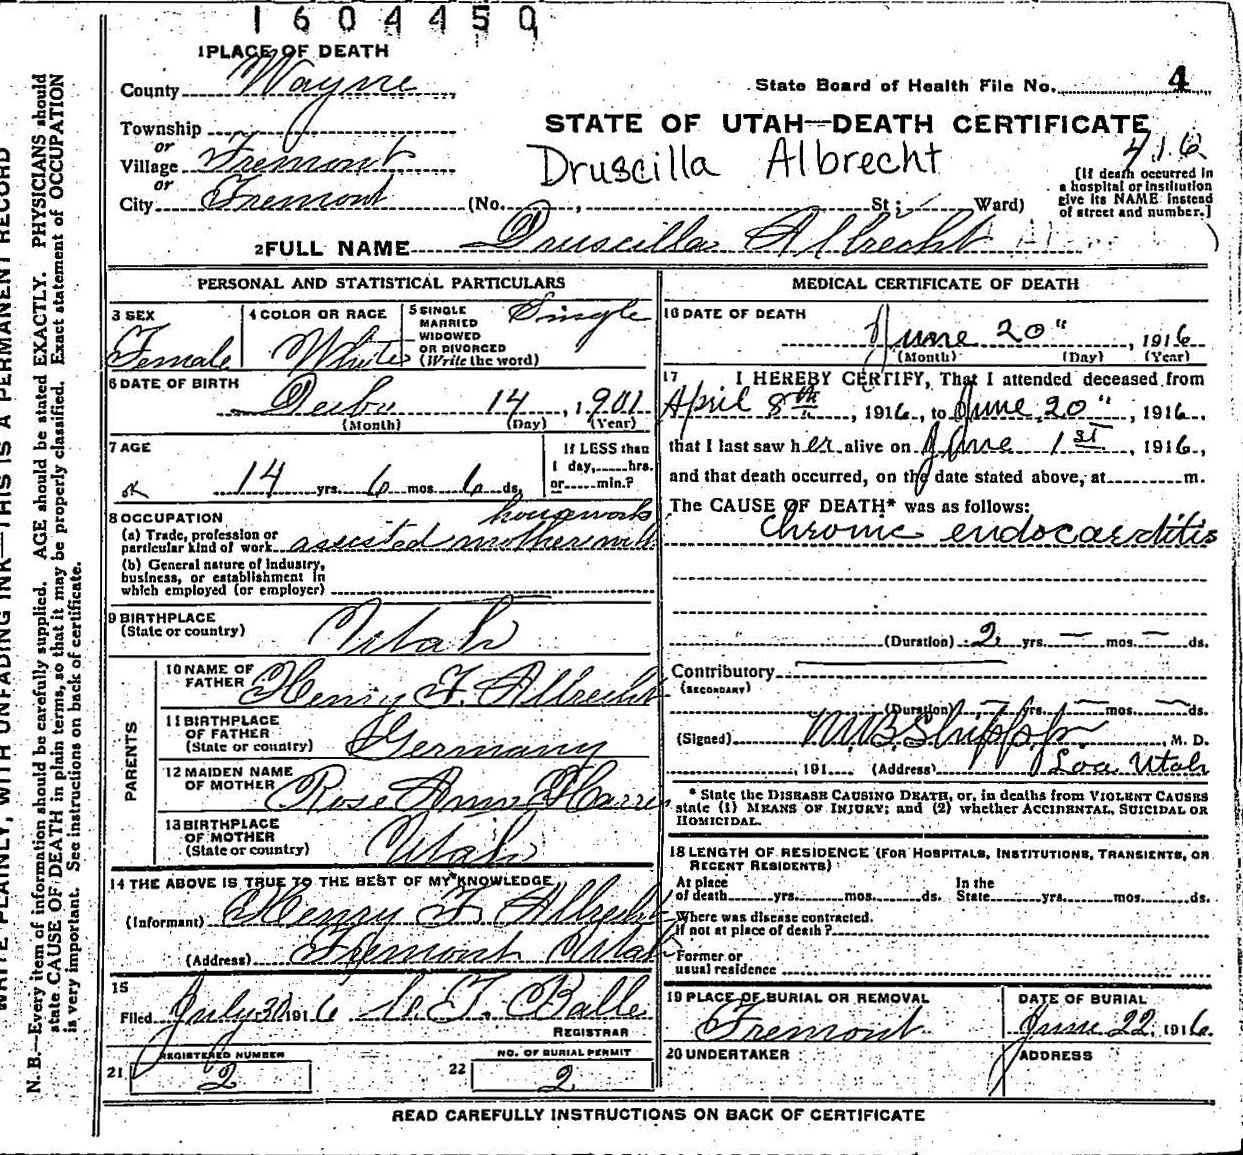 1604450
1 PLACE OF DEATH
County Wayne
State Board of Health File No. 4
Township
or
Village Fremont
or
City Fremont (No. , St; Ward)
STATE OF UTAH—DEATH CERTIFICATE
Druscilla Albrecht
416
[If death occurred in
a hospital or institution
give its NAME instead
of street and number.]
2 FULL NAME Druscilla Albrecht
PERSONAL AND STATISTICAL PARTICULARS
3 SEX
Female
4 COLOR OR RACE
White
5 SINGLE
MARRIED
WIDOWED
OR DIVORCED
(Write the word)
Single
6 DATE OF BIRTH
14, 1901
(Month) (Day) (Year)
7 AGE
14 yrs. 6 mos. 6 ds.
If LESS than
1 day, hrs.
or min.?
8 OCCUPATION
(a) Trade, profession or
particular kind of work assisted mother with
housework
(b) General nature of industry,
business, or establishment in
which employed (or employer)
9 BIRTHPLACE
(State or country) Utah
PARENTS
10 NAME OF
FATHER Henry F. Albrecht
11 BIRTHPLACE
OF FATHER
(State or country) Germany
12 MAIDEN NAME
OF MOTHER Rose Ann Harris
13 BIRTHPLACE
OF MOTHER
(State or country) Utah
14 THE ABOVE IS TRUE TO THE BEST OF MY KNOWLEDGE
(Informant) Henry F. Albrecht
(Address) Fremont Utah
15
Filed July 1916
REGISTRAR
REGISTERED NUMBER
21 2
NO. OF BURIAL PERMIT
22 2
MEDICAL CERTIFICATE OF DEATH
16 DATE OF DEATH
June 20", 1916
(Month) (Day) (Year)
17 I HEREBY CERTIFY, That I attended deceased from
April 8th, 1916, to June 20", 1916,
that I last saw her alive on June 1st, 1916,
and that death occurred, on the date stated above, at m.
The CAUSE OF DEATH* was as follows:
Chronic endocarditis
(Duration) 2 yrs. — mos. — ds.
Contributory
(SECONDARY)
(Duration) — yrs. — mos. — ds.
(Signed) M.D.
, 191 (Address) Loa Utah
* State the DISEASE CAUSING DEATH, or, in deaths from VIOLENT CAUSES
state (1) MEANS OF INJURY; and (2) whether ACCIDENTAL, SUICIDAL OR
HOMICIDAL.
18 LENGTH OF RESIDENCE (FOR HOSPITALS, INSTITUTIONS, TRANSIENTS, OR
RECENT RESIDENTS)
At place
of death yrs. mos. ds.
In the
State yrs. mos. ds.
Where was disease contracted.
If not at place of death?
Former or
usual residence
19 PLACE OF BURIAL OR REMOVAL
Fremont
DATE OF BURIAL
June 22, 1916.
20 UNDERTAKER
ADDRESS
READ CAREFULLY INSTRUCTIONS ON BACK OF CERTIFICATE
WRITE PLAINLY, WITH UNFADING INK—THIS IS A PERMANENT RECORD
N. B.—Every item of information should be carefully supplied. AGE should be stated EXACTLY. PHYSICIANS should
state CAUSE OF DEATH in plain terms, so that it may be properly classified. Exact statement of OCCUPATION
is very important. See instructions on back of certificate.